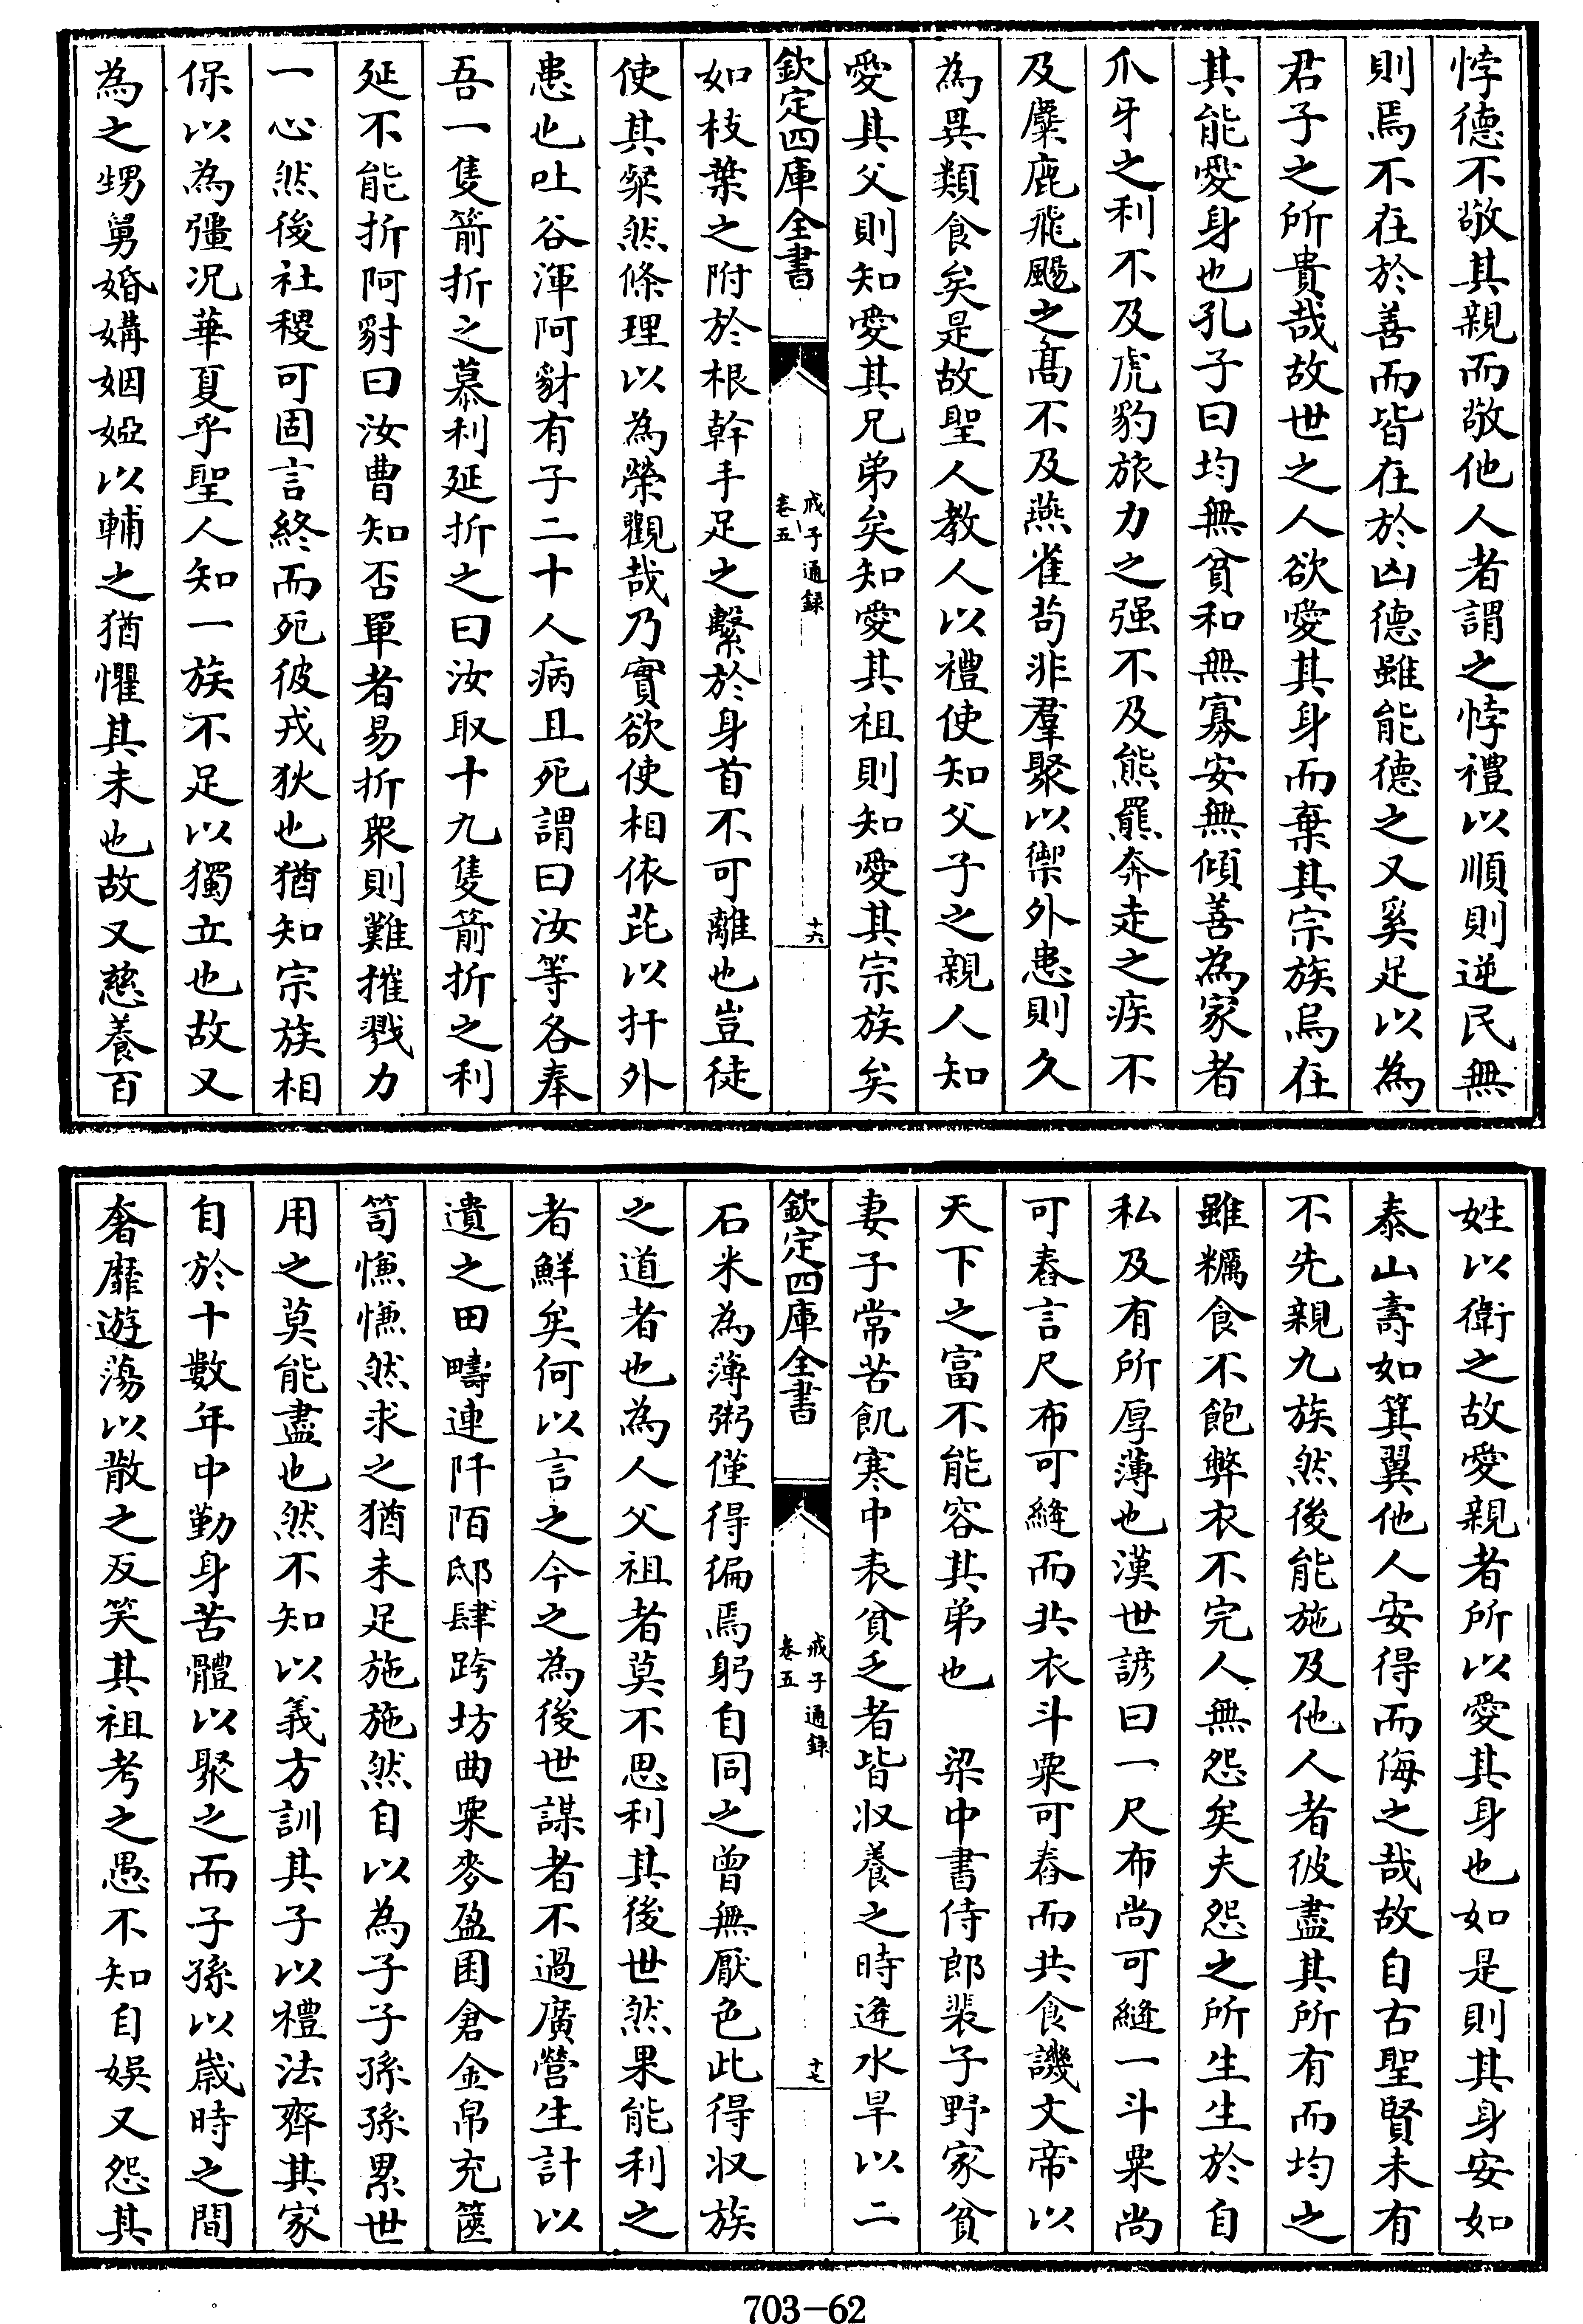 悖德不敬其親而敬他人者謂之悖禮以順則逆民無
則焉不在於善而皆在於凶德雖能德之又奚足以為
君子之所貴哉故世之人欲愛其身而棄其宗族烏在
其能愛身也孔子曰均無貧和無寡安無傾善為家者
爪牙之利不及虎豹旅力之强不及熊羆奔走之疾不
及麋鹿飛颺之髙不及燕雀茍非羣聚以禦外患則久
為異類食矣是故聖人教人以禮使知父子之親人知
愛其父則知愛其兄弟矣知愛其祖則知愛其宗族矣
欽定四庫全書
戒子通録
卷五
十六
如枝葉之附於根幹手足之繫於身首不可離也豈徒
使其粲然條理以為榮觀哉乃實欲使相依芘以扞外
患也吐谷渾阿豺有子二十人病且死謂曰汝等各奉
吾一隻箭折之慕利延折之曰汝取十九隻箭折之利
延不能折阿豺曰汝曹知否單者易折衆則難摧戮力
一心然後社稷可固言終而死彼戎狄也猶知宗族相
保以為彊况華夏乎聖人知一族不足以獨立也故又
為之甥舅婚媾姻婭以輔之猶懼其未也故又慈養百
姓以衛之故愛親者所以愛其身也如是則其身安如
泰山壽如箕翼他人安得而侮之哉故自古聖賢未有
不先親九族然後能施及他人者彼盡其所有而均之
雖糲食不飽弊衣不完人無怨矣夫怨之所生生於自
私及有所厚薄也漢世諺曰一尺布尚可縫一斗粟尚
可舂言尺布可縫而共衣斗粟可舂而共食譏文帝以
天下之富不能容其弟也　梁中書侍郎裴子野家貧
妻子常苦飢寒中表貧乏者皆収養之時逢水旱以二
欽定四庫全書
戒子通録
卷五
十七
石米為薄粥僅得徧焉躬自同之曾無厭色此得収族
之道者也為人父祖者莫不思利其後世然果能利之
者鮮矣何以言之今之為後世謀者不過廣營生計以
遺之田疇連阡陌邸肆跨坊曲粟麥盈囷倉金帛充篋
笥慊慊然求之猶未足施施然自以為子子孫孫累世
用之莫能盡也然不知以義方訓其子以禮法齊其家
自於十數年中勤身苦體以聚之而子孫以歳時之間
奢靡遊蕩以散之反笑其祖考之愚不知自娛又怨其
703-62